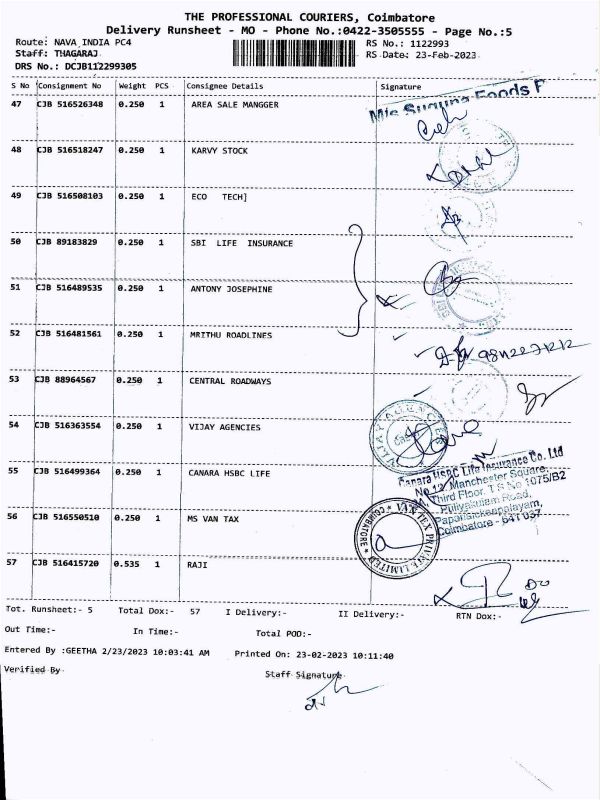 THE PROFESSIONAL COURIERS, Coimbatore
Delivery Runsheet - MO - Phone No.:0422-3505555 - Page No.:5
Route: NAVA INDIA PC4 RS No.: 1122993
Staff: THAGARAJ RS Date: 23-Feb-2023
DRS No.: DCJB112299305
S No Consignment No Weight PCS Consignee Details Signature
47 CJB 516526348 0.250 1 AREA SALE MANGGER
M/s Suguna Foods P
48 CJB 516518247 0.250 1 KARVY STOCK
49 CJB 516508103 0.250 1 ECO TECH]
50 CJB 89183829 0.250 1 SBI LIFE INSURANCE
51 CJB 516489535 0.250 1 ANTONY JOSEPHINE
52 CJB 516481561 0.250 1 MRITHU ROADLINES
53 CJB 88964567 0.250 1 CENTRAL ROADWAYS
54 CJB 516363554 0.250 1 VIJAY AGENCIES
55 CJB 516499364 0.250 1 CANARA HSBC LIFE
Canara HSBC Life Insurance Co. Ltd
No 12, Manchester Square,
Third Floor, T S No 1075/B2
Puliyakulam Road,
Papanaickenpalayam,
Coimbatore - 641 037
56 CJB 516550510 0.250 1 MS VAN TAX
VAN TEX PRIVATE LIMITED
COIMBATORE
57 CJB 516415720 0.535 1 RAJI
Tot. Runsheet:- 5 Total Dox:- 57 I Delivery:- II Delivery:- RTN Dox:-
Out Time:- In Time:- Total POD:-
Entered By :GEETHA 2/23/2023 10:03:41 AM Printed On: 23-02-2023 10:11:40
Verified By Staff Signature